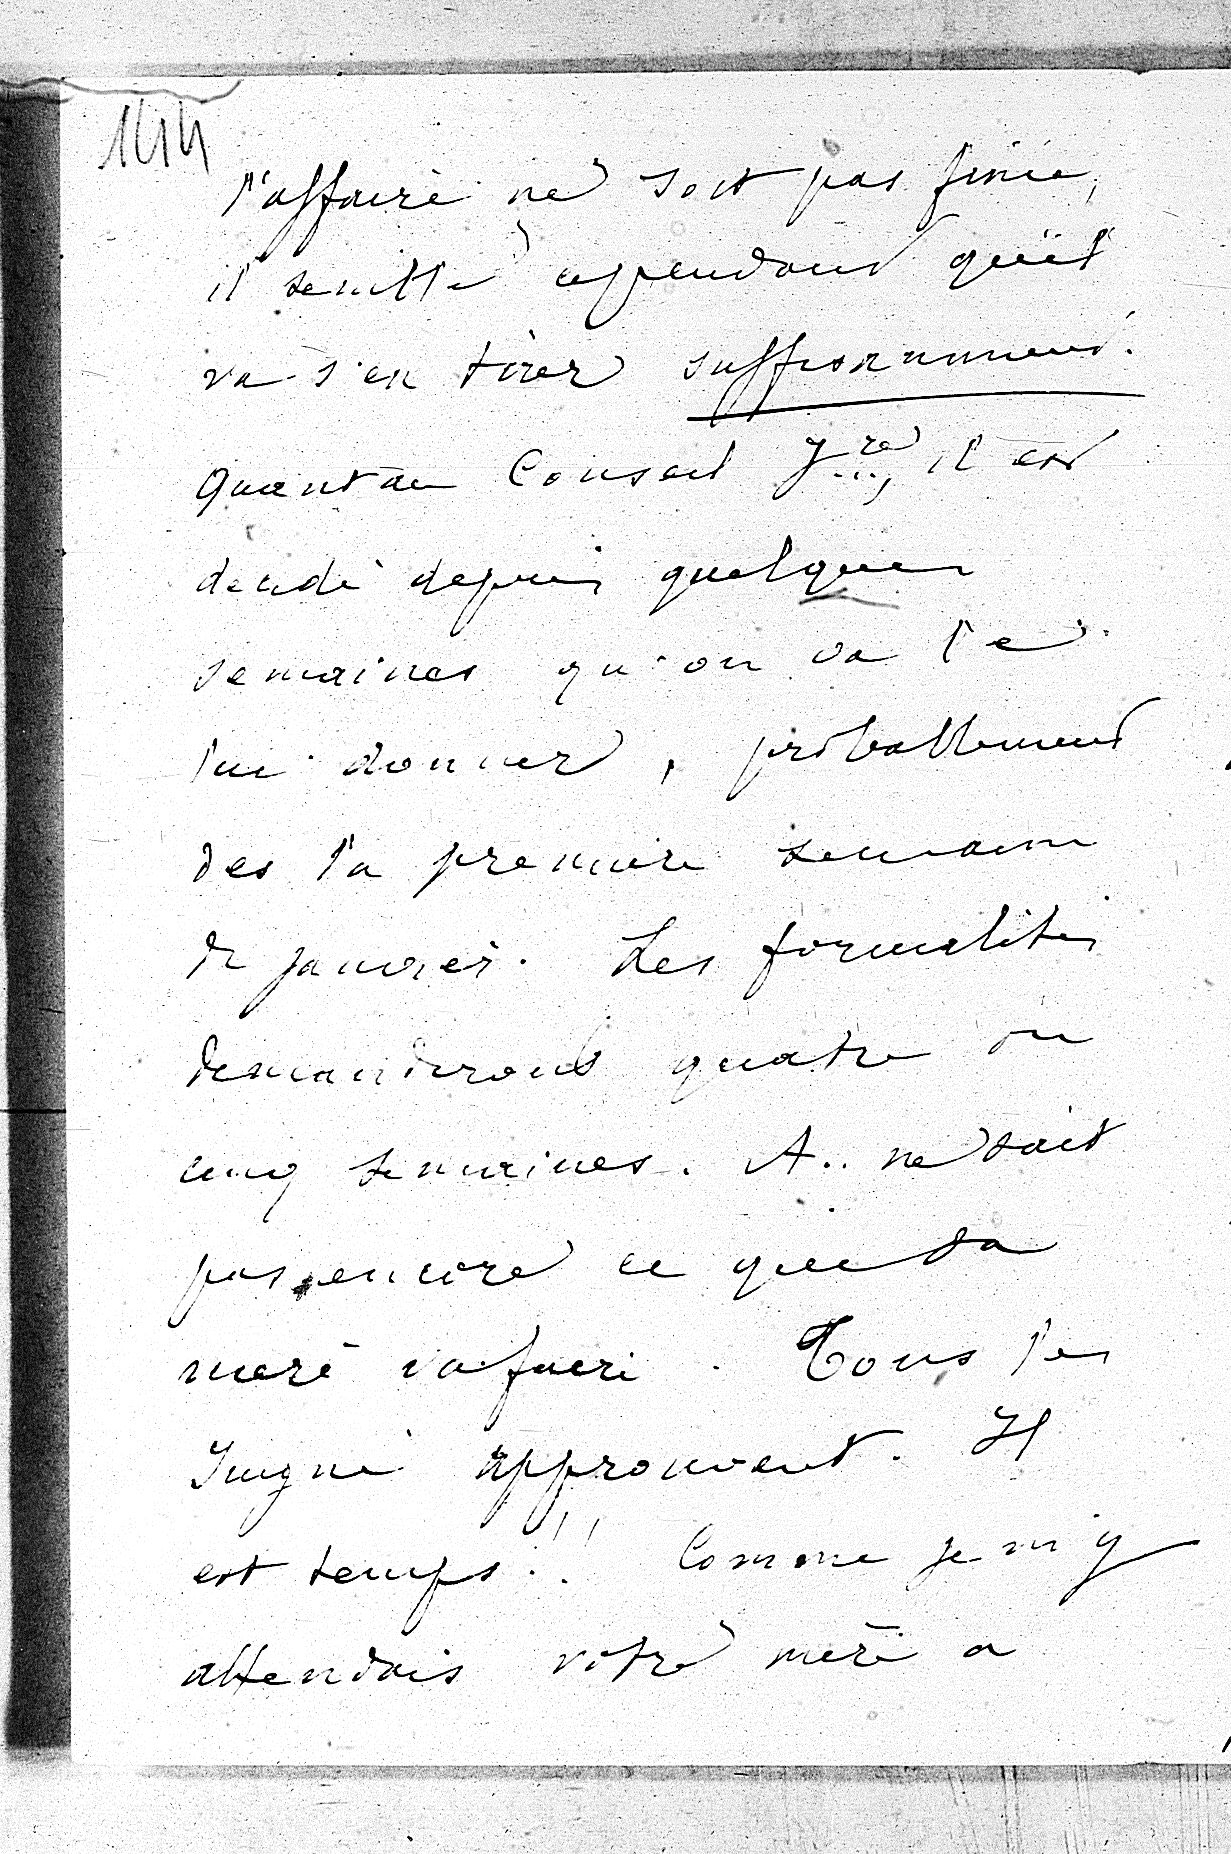 144
l'affaire ne soit pas finie,
il semble cependant qu'il
va s'en tirer suffisamment.
Quant au Conseil Jre, il est
décidé depuis quelques
semaines qu'on va le
lui donner, probablement
des la premiere semaine
de janvier. Les formalités
demanderont quatre ou
cinq semaines. A.. ne sait
pas encore ce que sa
mere va faire. Tous les
Juigné approuvent. Il
est temps!! Comme je m'y
attendais votre mère a